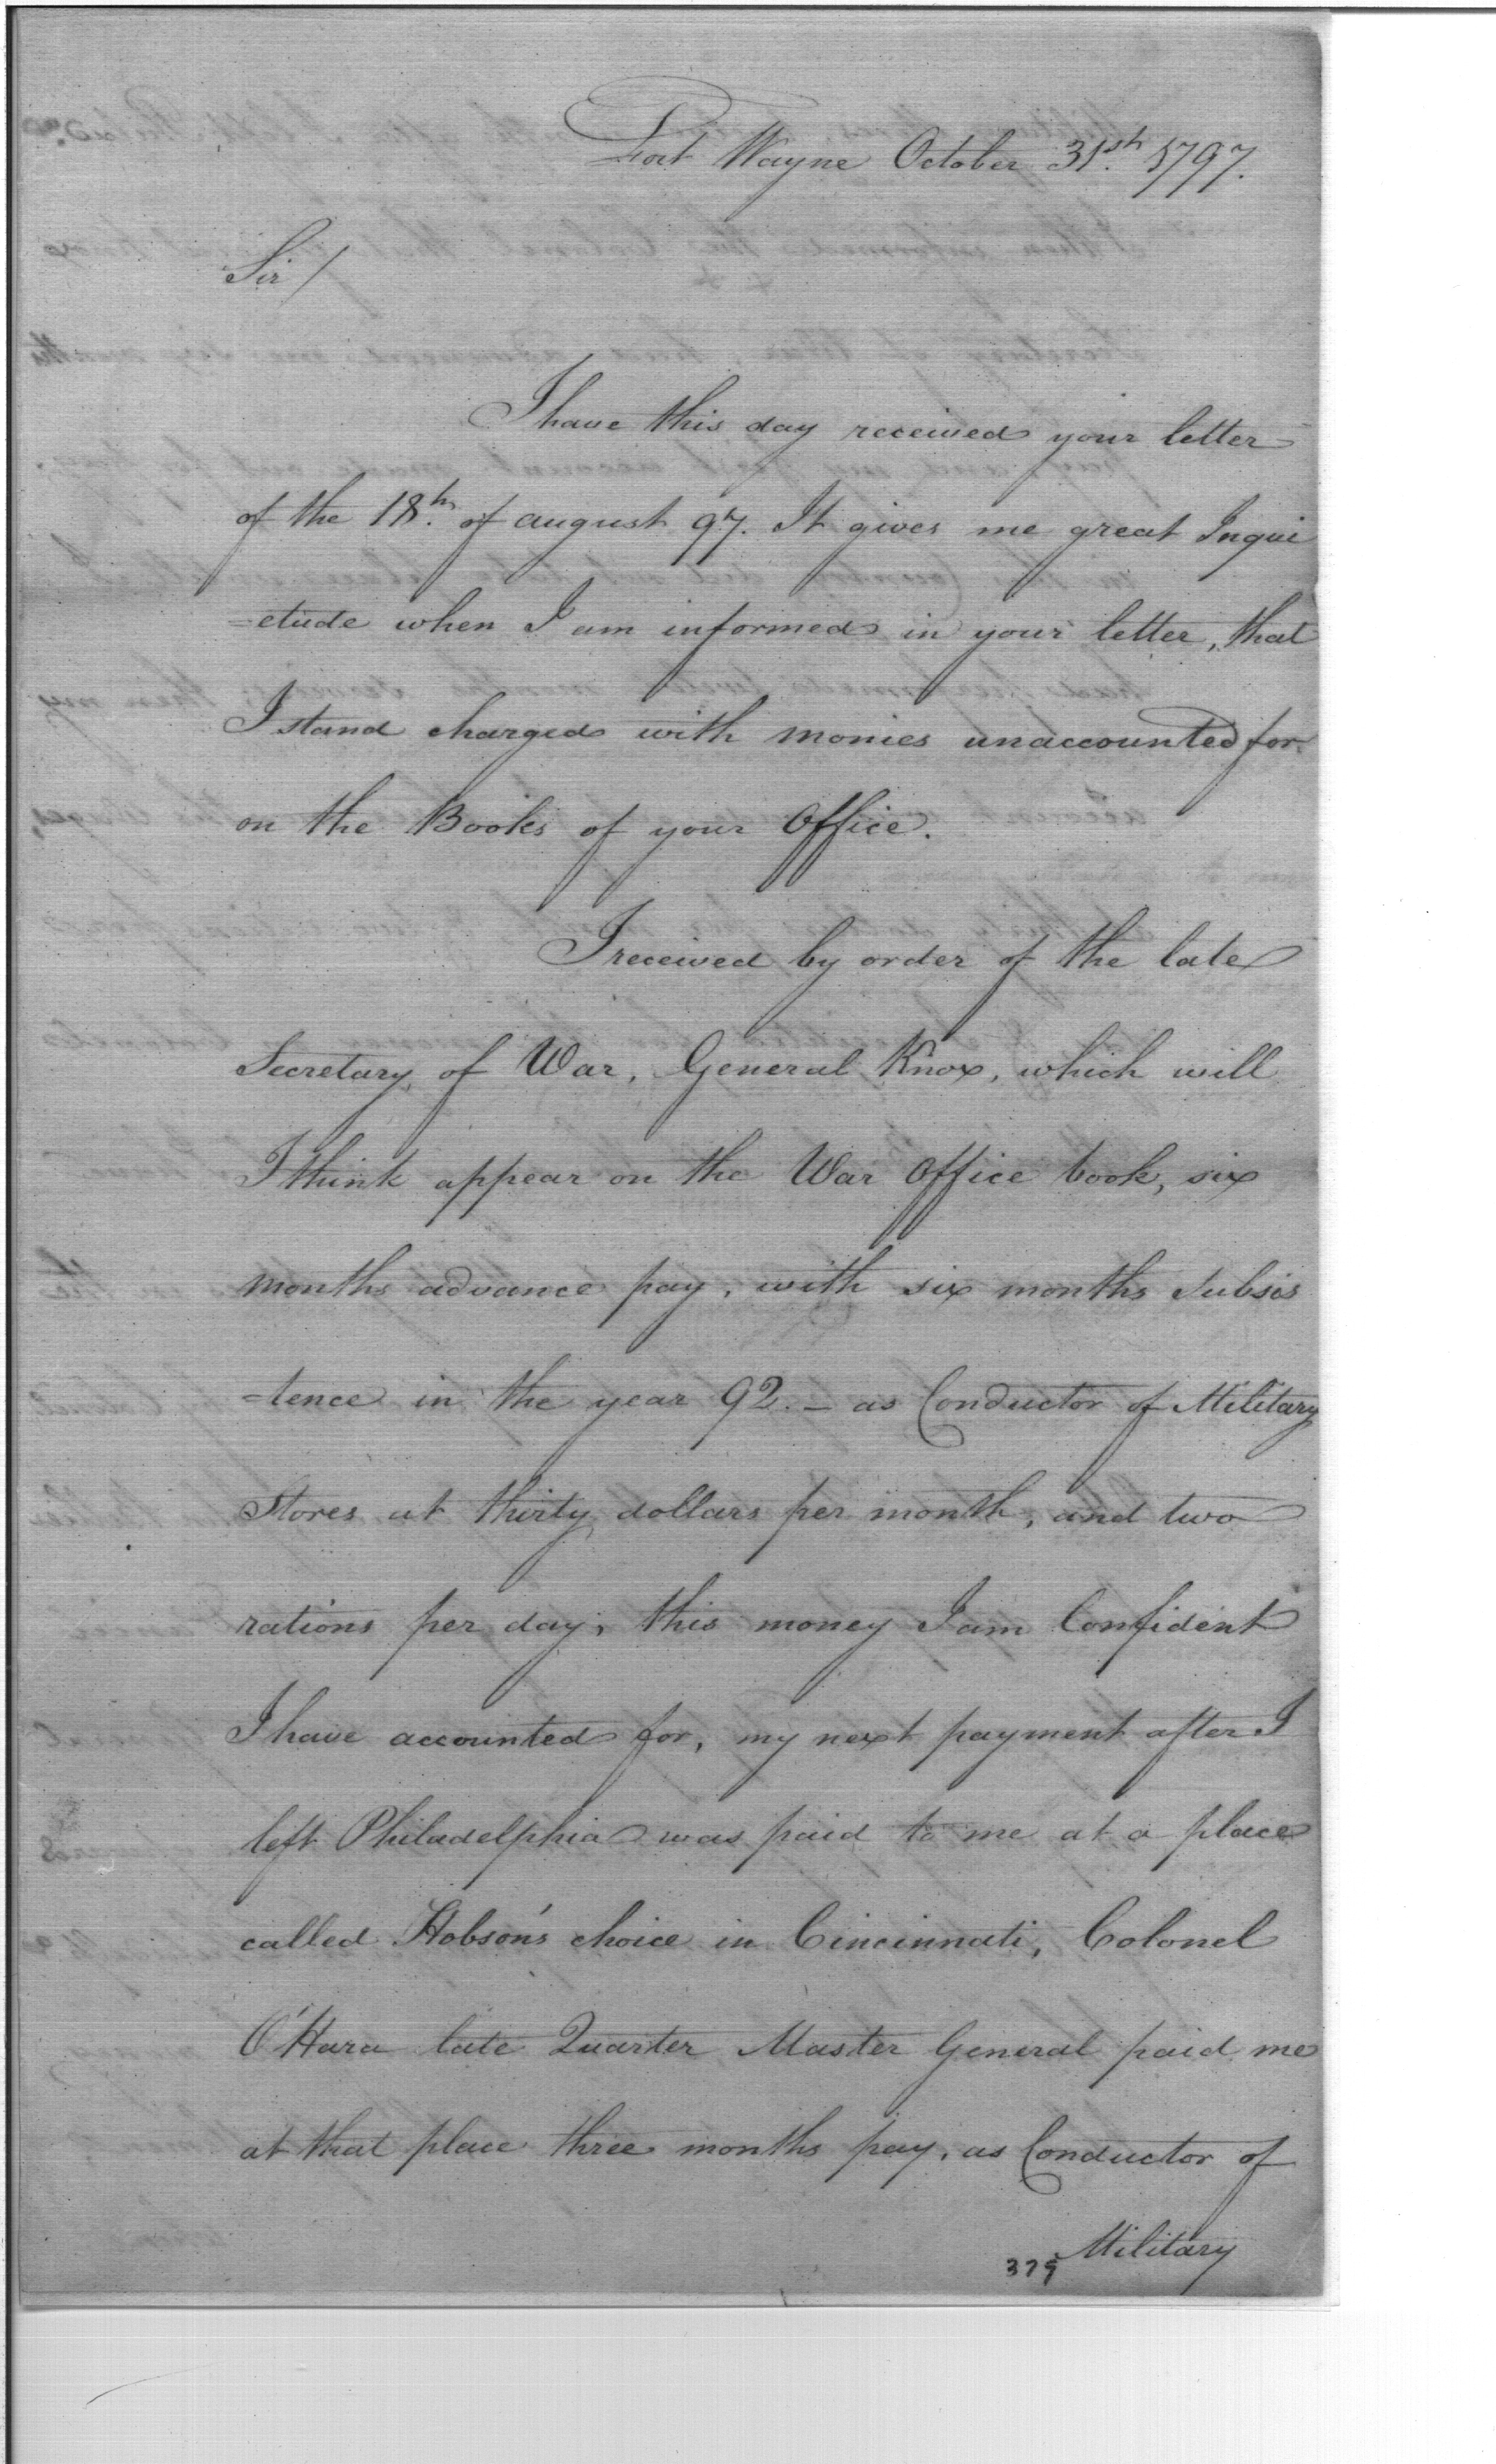 Fort Wayne October 31st. 1797.
Sir/
I have this day received your letter
of the 18th. of august 97. It gives me great Inqui
=etude when I am informed in your letter, that
I stand charged with monies unaccounted for
on the Books of your Office.
I received by order of the late
Secretary of War, General Knox, which will
I think appear on the War Office book, six
months advance pay, with six months subsis
=tence in the year 92. – as Conductor of Military
stores at thirty dollars per month, and two
rations per day, this money I am Confident
I have accounted for, my next payment after I
left Philadelphia was paid to me at a place
called Hobson's choice in Cincinnati, Colonel
O'Hara late Quarter Master General paid me
at that place three months pay, as Conductor of
Military
379